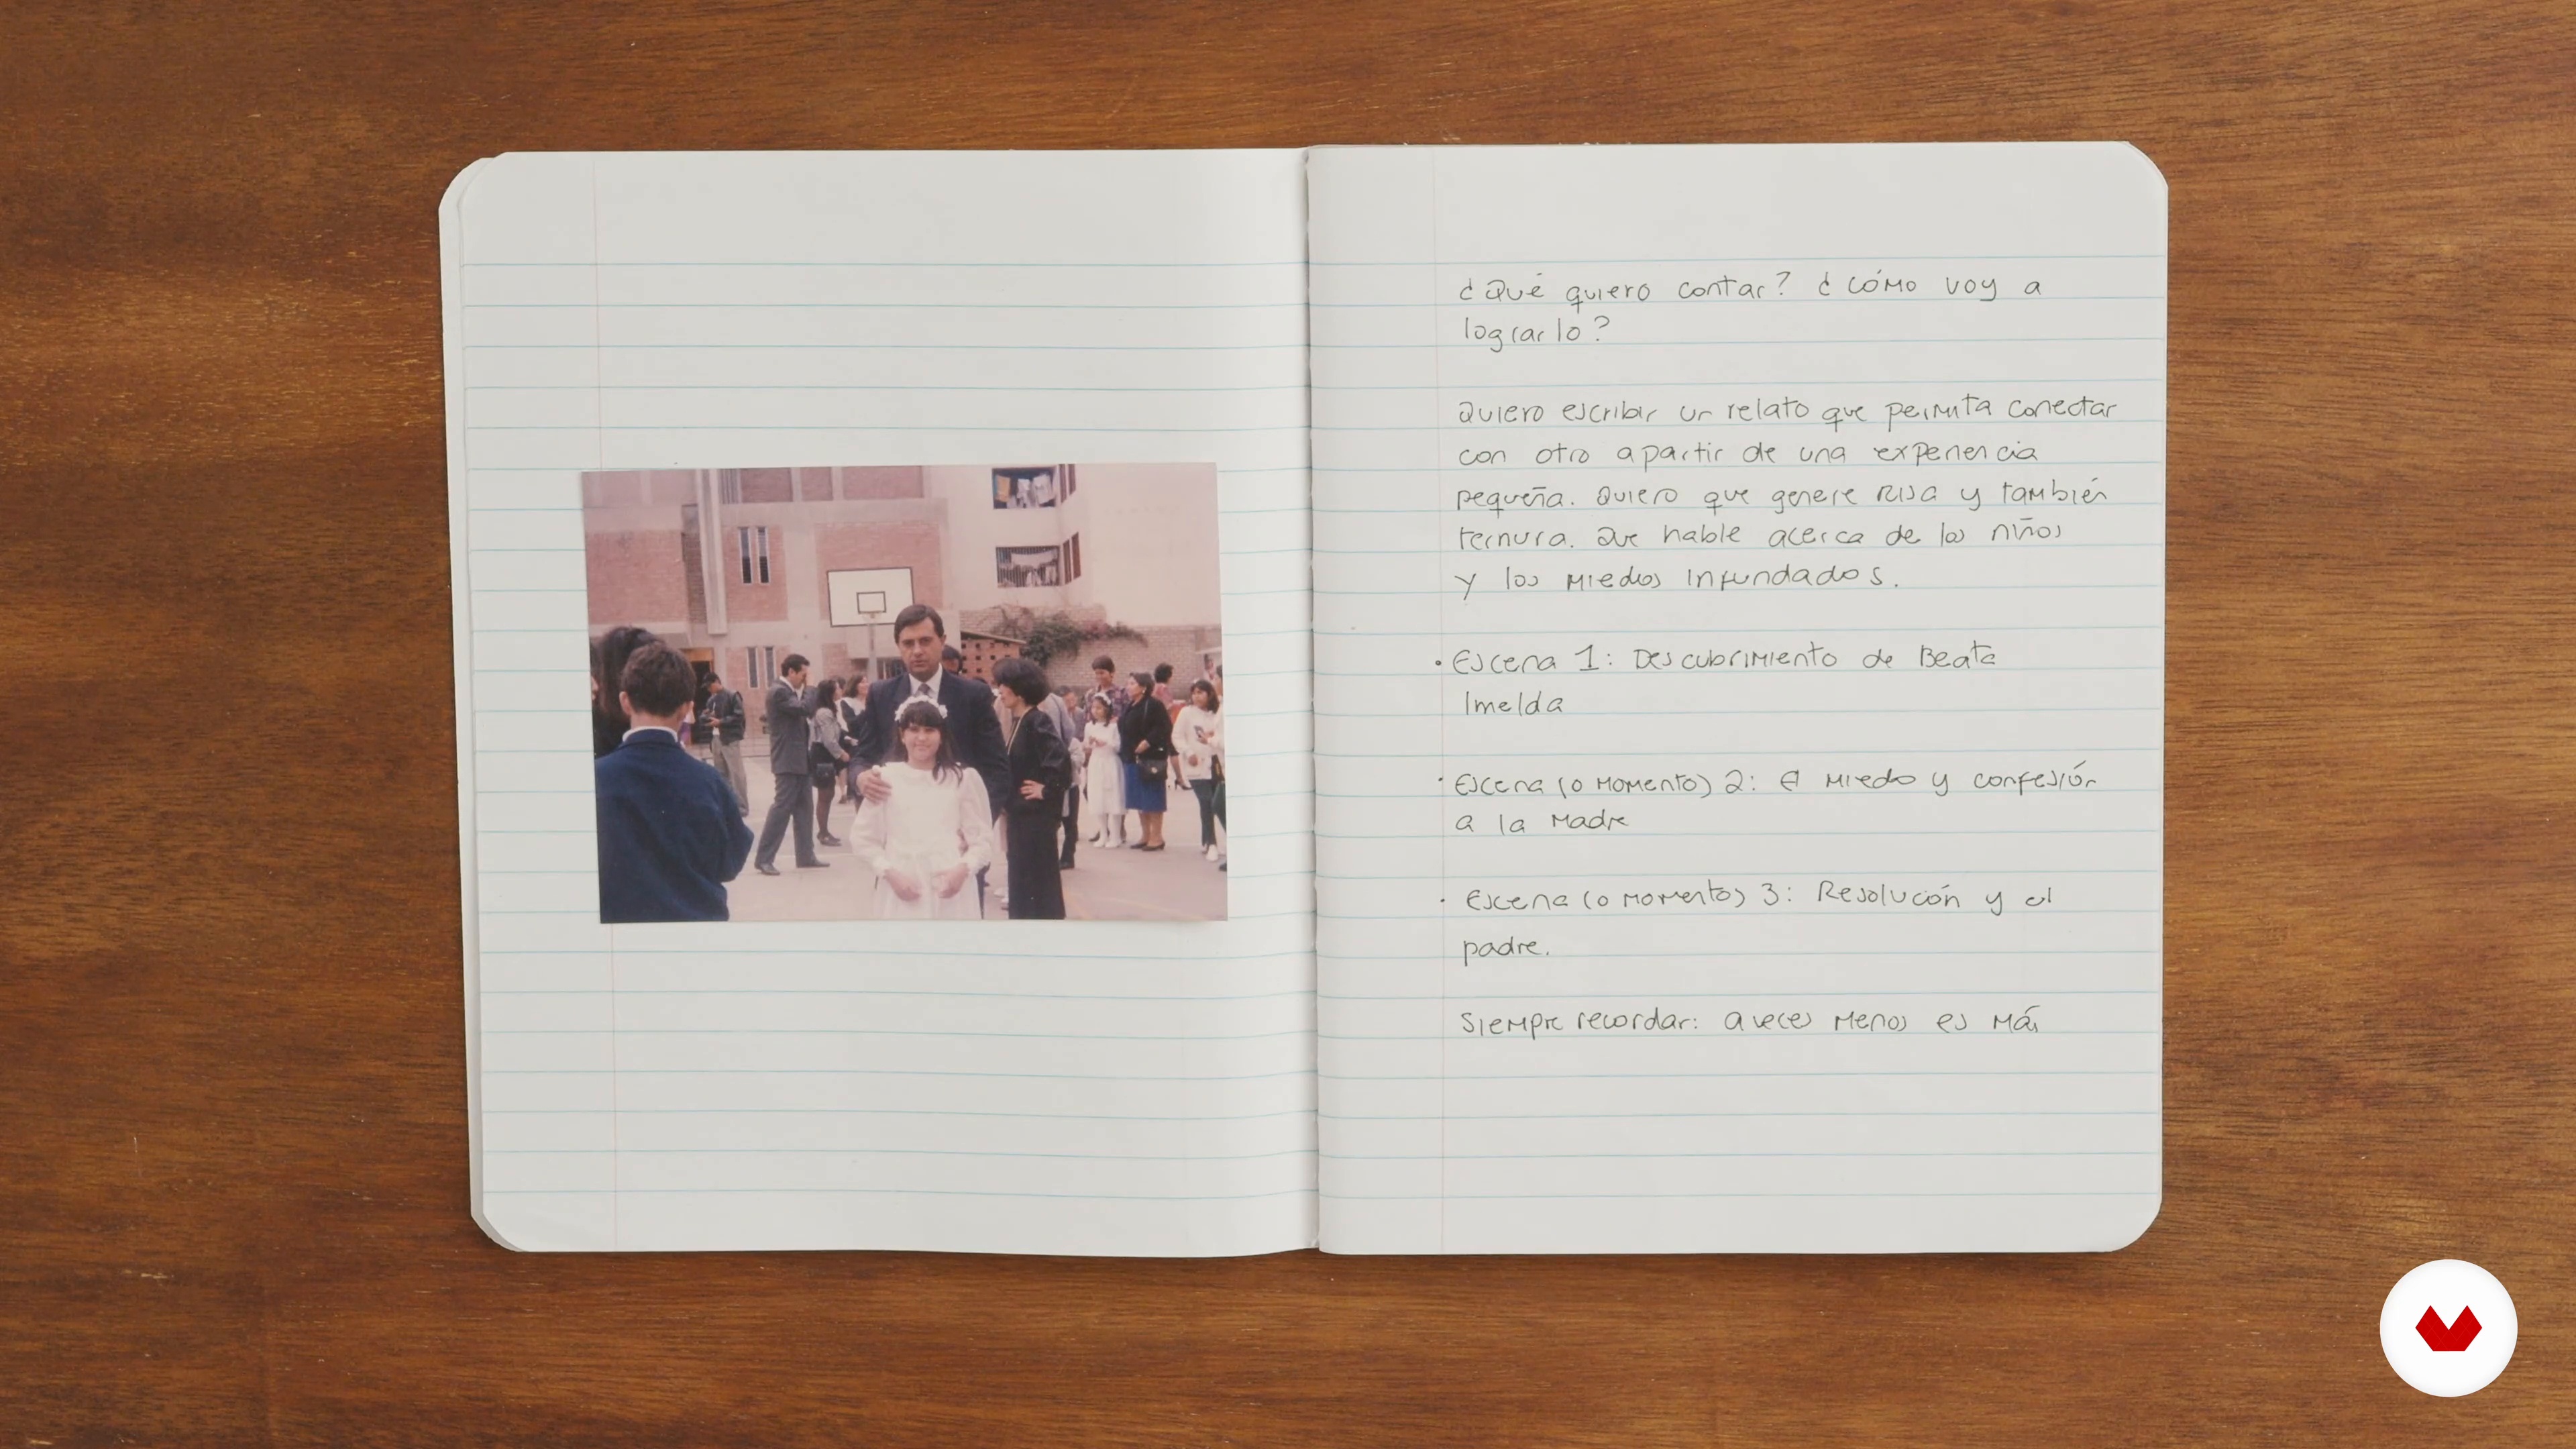 ¿Qué quiero contar? ¿Cómo voy a
lograrlo?
Quiero escribir un relato que permita conectar
con otro a partir de una experiencia
pequeña. Quiero que genere risa y también
ternura. Que hable acerca de los niños
y los miedos infundados.
• Escena 1: Descubrimiento de Beata
Imelda
• Escena (o momento) 2: El miedo y confesión
a la madre
• Escena (o momento) 3: Resolución y el
padre.
Siempre recordar: a veces menos es más